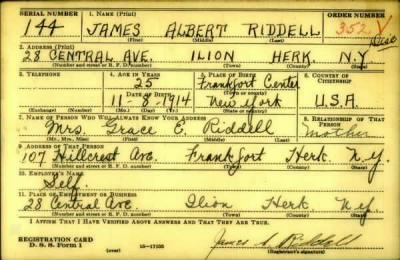 SERIAL NUMBER 1. NAME (Print) ORDER NUMBER
144 JAMES ALBERT RIDDELL 352
(First) (Middle) (Last)
2. ADDRESS (Print)
28 CENTRAL AVE. ILION HERK. N.Y.
(Number and street or R. F. D. number) (Town) (County) (State)
3. TELEPHONE 4. AGE IN YEARS 5. PLACE OF BIRTH 6. COUNTRY OF CITIZENSHIP
25 Frankfort Center
DATE OF BIRTH (Town or county)
11-8-1914 New York U.S.A.
(Exchange) (Number) (Mo.) (Day) (Yr.) (State or country)
7. NAME OF PERSON WHO WILL ALWAYS KNOW YOUR ADDRESS 8. RELATIONSHIP OF THAT PERSON
Mrs. Grace E. Riddell Mother
(Mr., Mrs., Miss) (First) (Middle) (Last)
9. ADDRESS OF THAT PERSON
107 Hillcrest Ave. Frankfort Herk. N.Y.
(Number and street or R. F. D. number) (Town) (County) (State)
10. EMPLOYER'S NAME
Self.
11. PLACE OF EMPLOYMENT OR BUSINESS
28 Central Ave. Ilion Herk N.Y.
(Number and street or R. F. D. number) (Town) (County) (State)
I AFFIRM THAT I HAVE VERIFIED ABOVE ANSWERS AND THAT THEY ARE TRUE.
REGISTRATION CARD
D. S. S. FORM 1 (over) 16-17105 James A Riddell
(Registrant's signature)